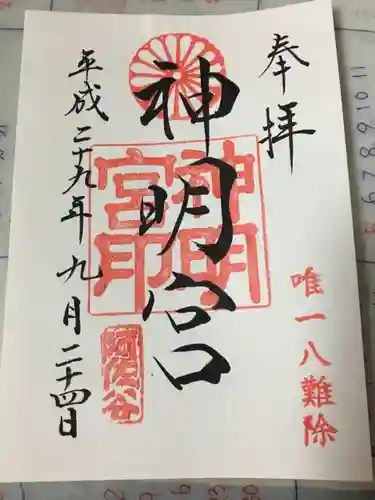 奉拝
唯一八難除
神明宮
神明宮印
平成二十九年九月二十四日
阿佐谷